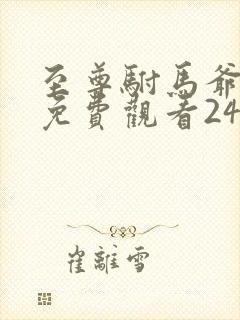 至尊駙馬爺
免費觀看24
崔離雪